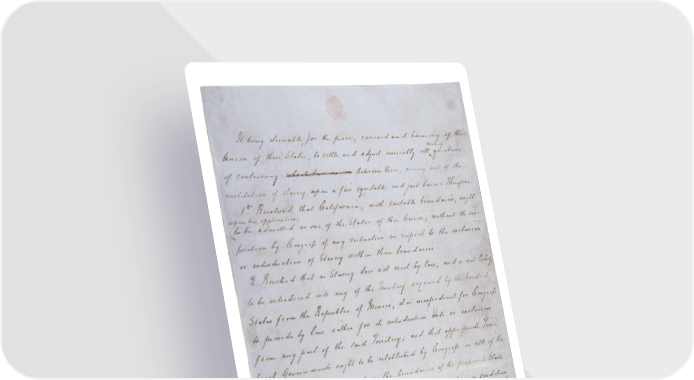 It being desirable, for the peace, concord and harmony of the
Union of these States, to settle and adjust amicably all
of controversy between them, arising out of the
institution of slavery upon a fair equitable and just basis: Therefore,
1st. Resolved that California, with suitable boundaries, ought
upon her application
to be admitted as one of the States of this Union, without the im-
position by Congress of any restriction in respect to the exclusion
or introduction of Slavery within those boundaries
2. Resolved that as Slavery does not exist by law, and is not likely
to be introduced into any of the Territory acquired by the United
States from the Republic of Mexico, it is inexpedient for Congress
to provide by law either for its introduction into or exclusion
from any part of the said Territory; and that appropriate Terri-
torial Governments ought to be established by Congress in all of the
the boundaries of the proposed State